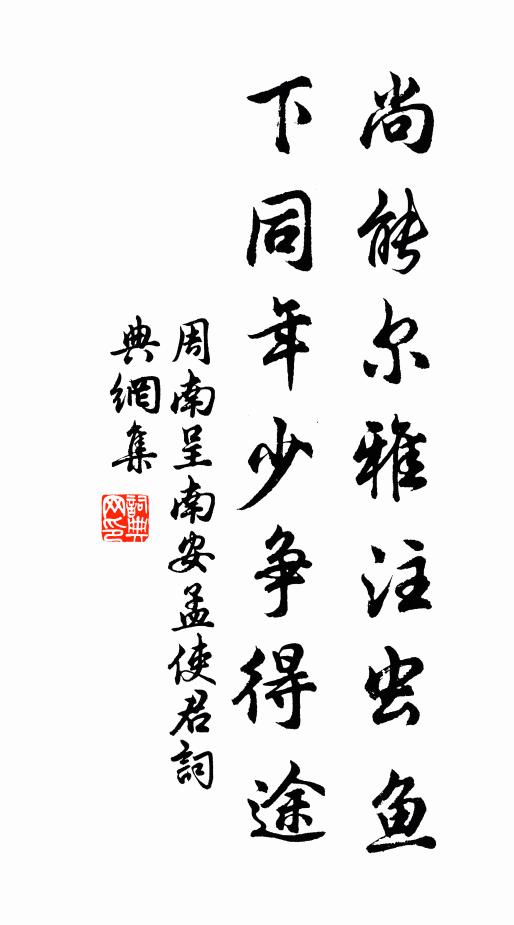 尚能尔雅注虫鱼
下同年少争得途
周南呈南安孟使君詞
典網集
詞典网印